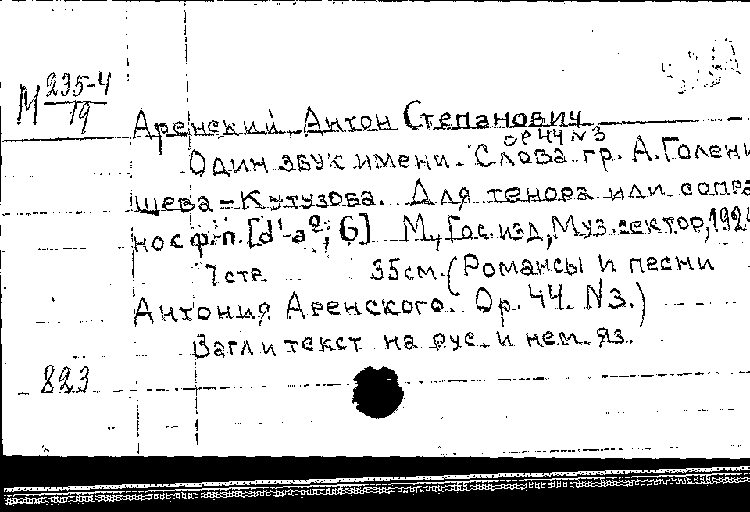 М 235-4
19
Аренский, Антон Степанович
ор 44 N 3
Один звук имени. Слова гр. А. Голени
щева-Кутузова. Для тенора или сопра
но с ф.-п. [d¹-a²; G] М., Гос. изд, Муз. сектор, 192
7 стр. 35 см. (Романсы и песни
Антония Аренского. Ор. 44. N3.)
Загл и текст на рус. и нем. яз.
823